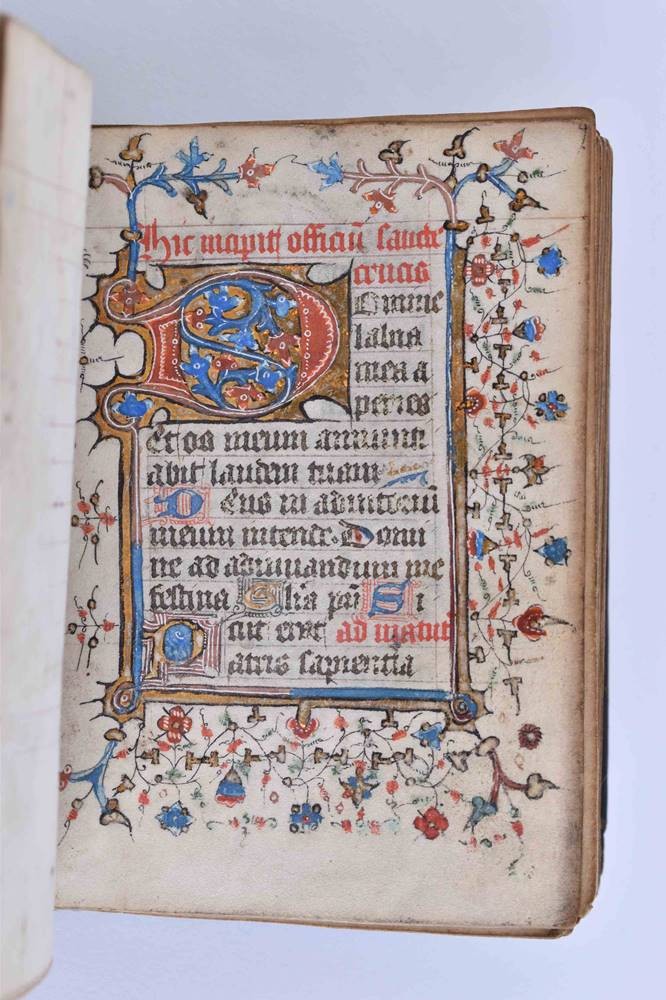 Hic incipit officiū sancte
crucis
Domine
labia
mea a
peries
Et os meum annunti
abit laudem tuam
Deus in adiutoriū
meum intende. Domi
ne ad adiuuandum me
festina Glia pri Si
cut erat ad matut
Patris sapientia